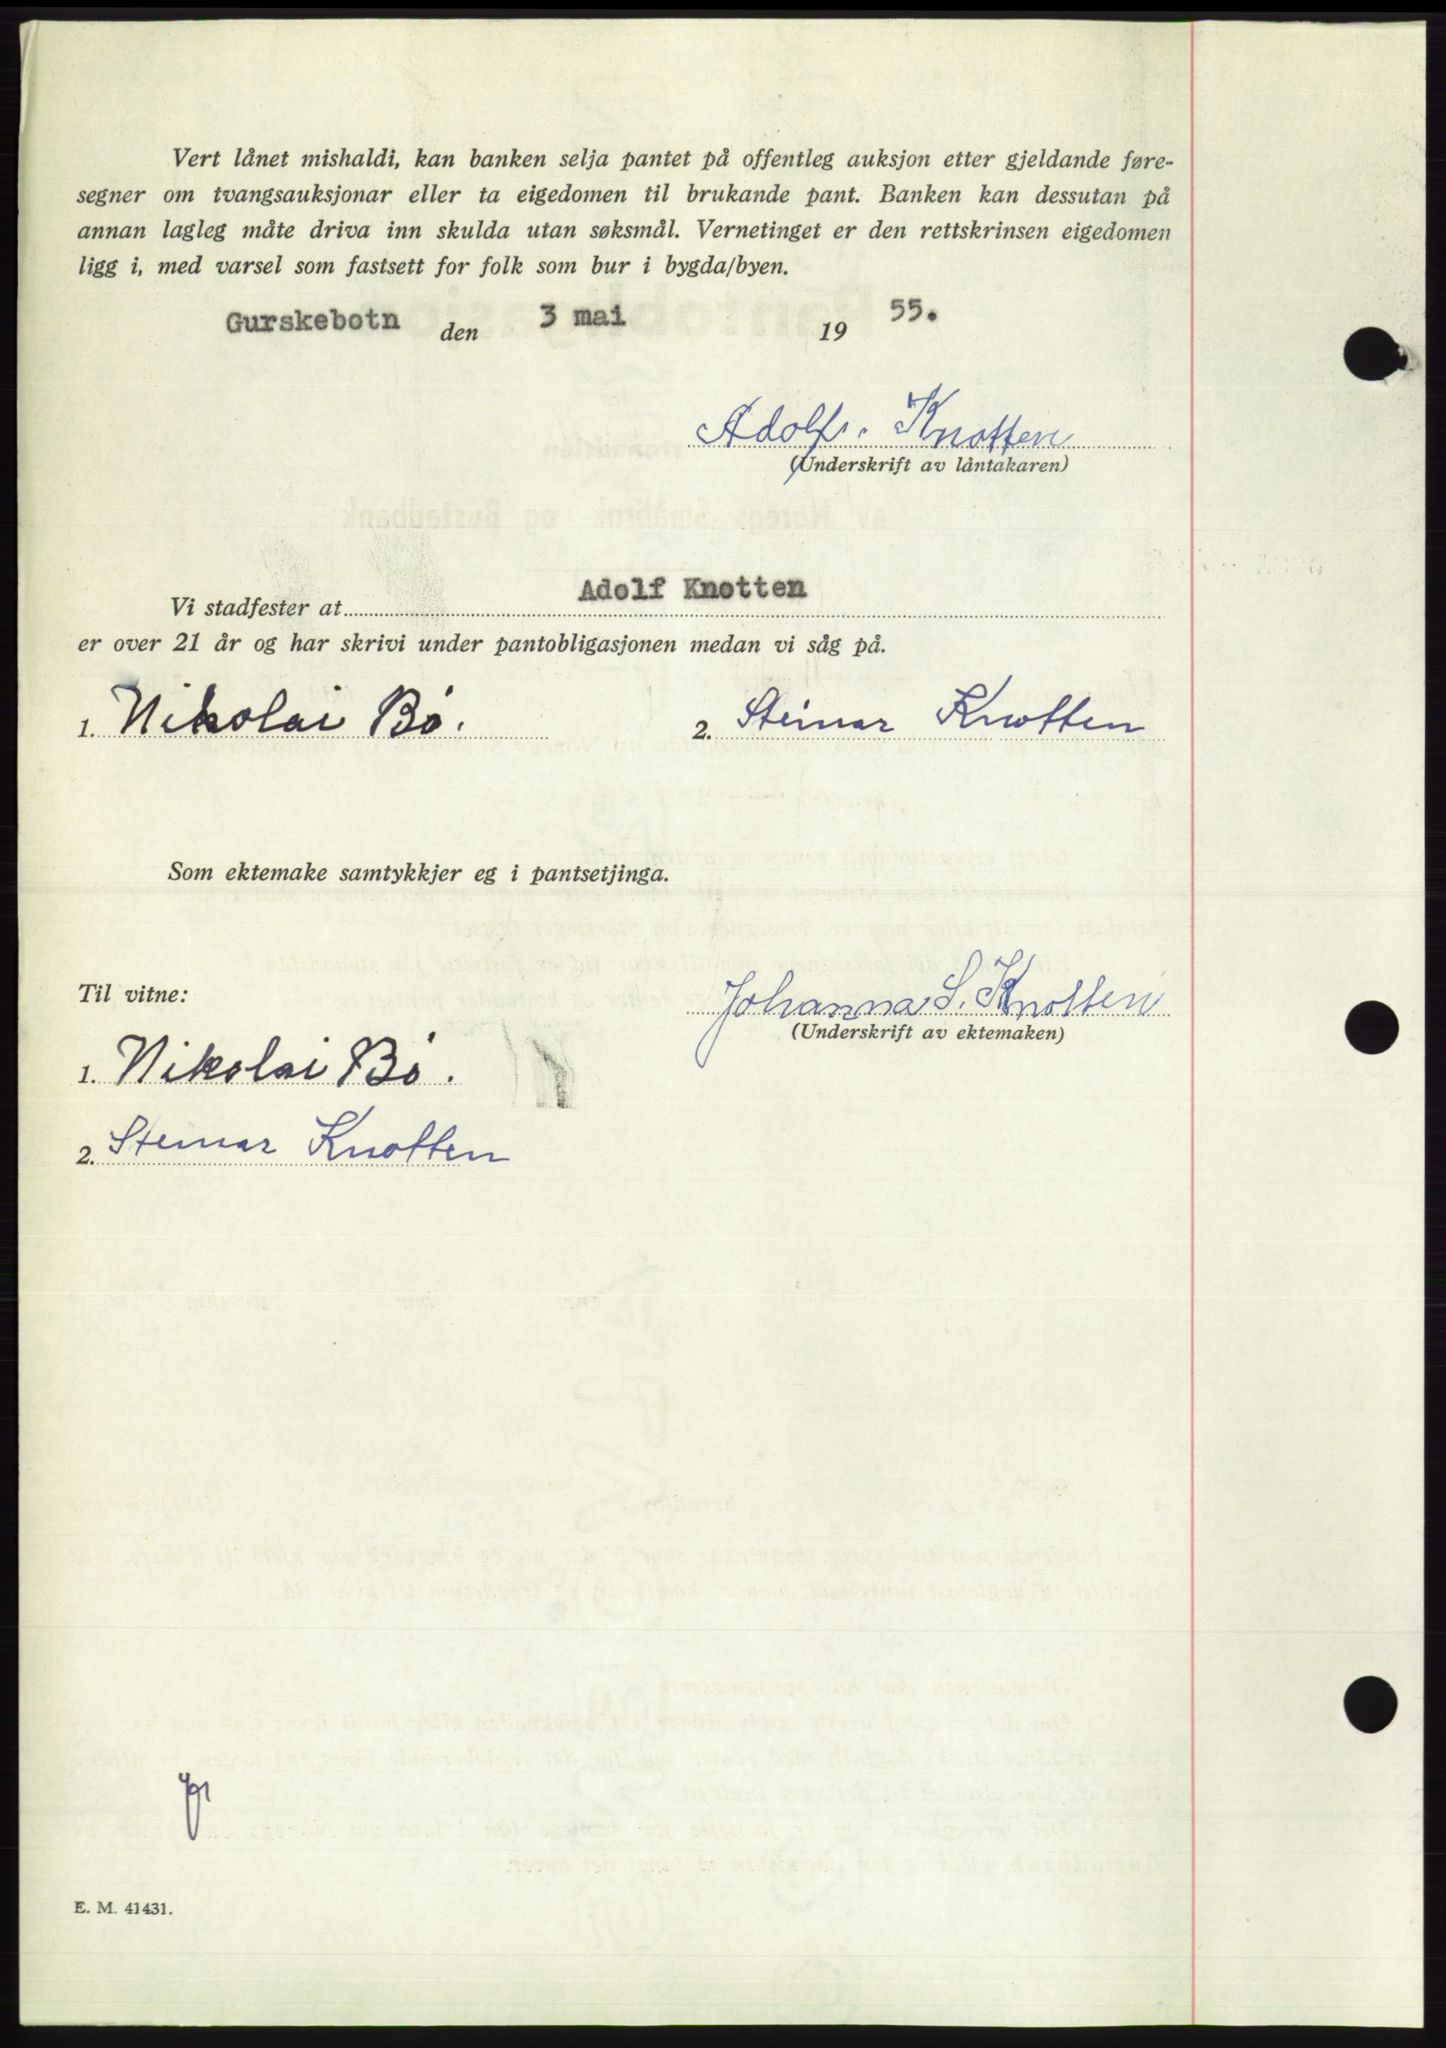 Vert lånet mishaldi, kan banken selja pantet på offentleg auksjon etter gjeldande føre-
segner om tvangsauksjonar eller ta eigedomen til brukande pant. Banken kan dessutan på
annan lagleg måte driva inn skulda utan søksmål. Vernetinget er den rettskrinsen eigedomen
ligg i, med varsel som fastsett for folk som bur i bygda/byen.
Gurskebotn den 3 mai 19 55.
Adolf Knotten
(Underskrift av låntakaren)
Vi stadfester at Adolf Knotten
er over 21 år og har skrivi under pantobligasjonen medan vi såg på.
1. Nikolai Bø. 2. Steinar Knotten
Som ektemake samtykkjer eg i pantsetjinga.
Til vitne:
Johanna S. Knotten
(Underskrift av ektemaken)
1. Nikolai Bø.
2. Steinar Knotten
E. M. 41431.